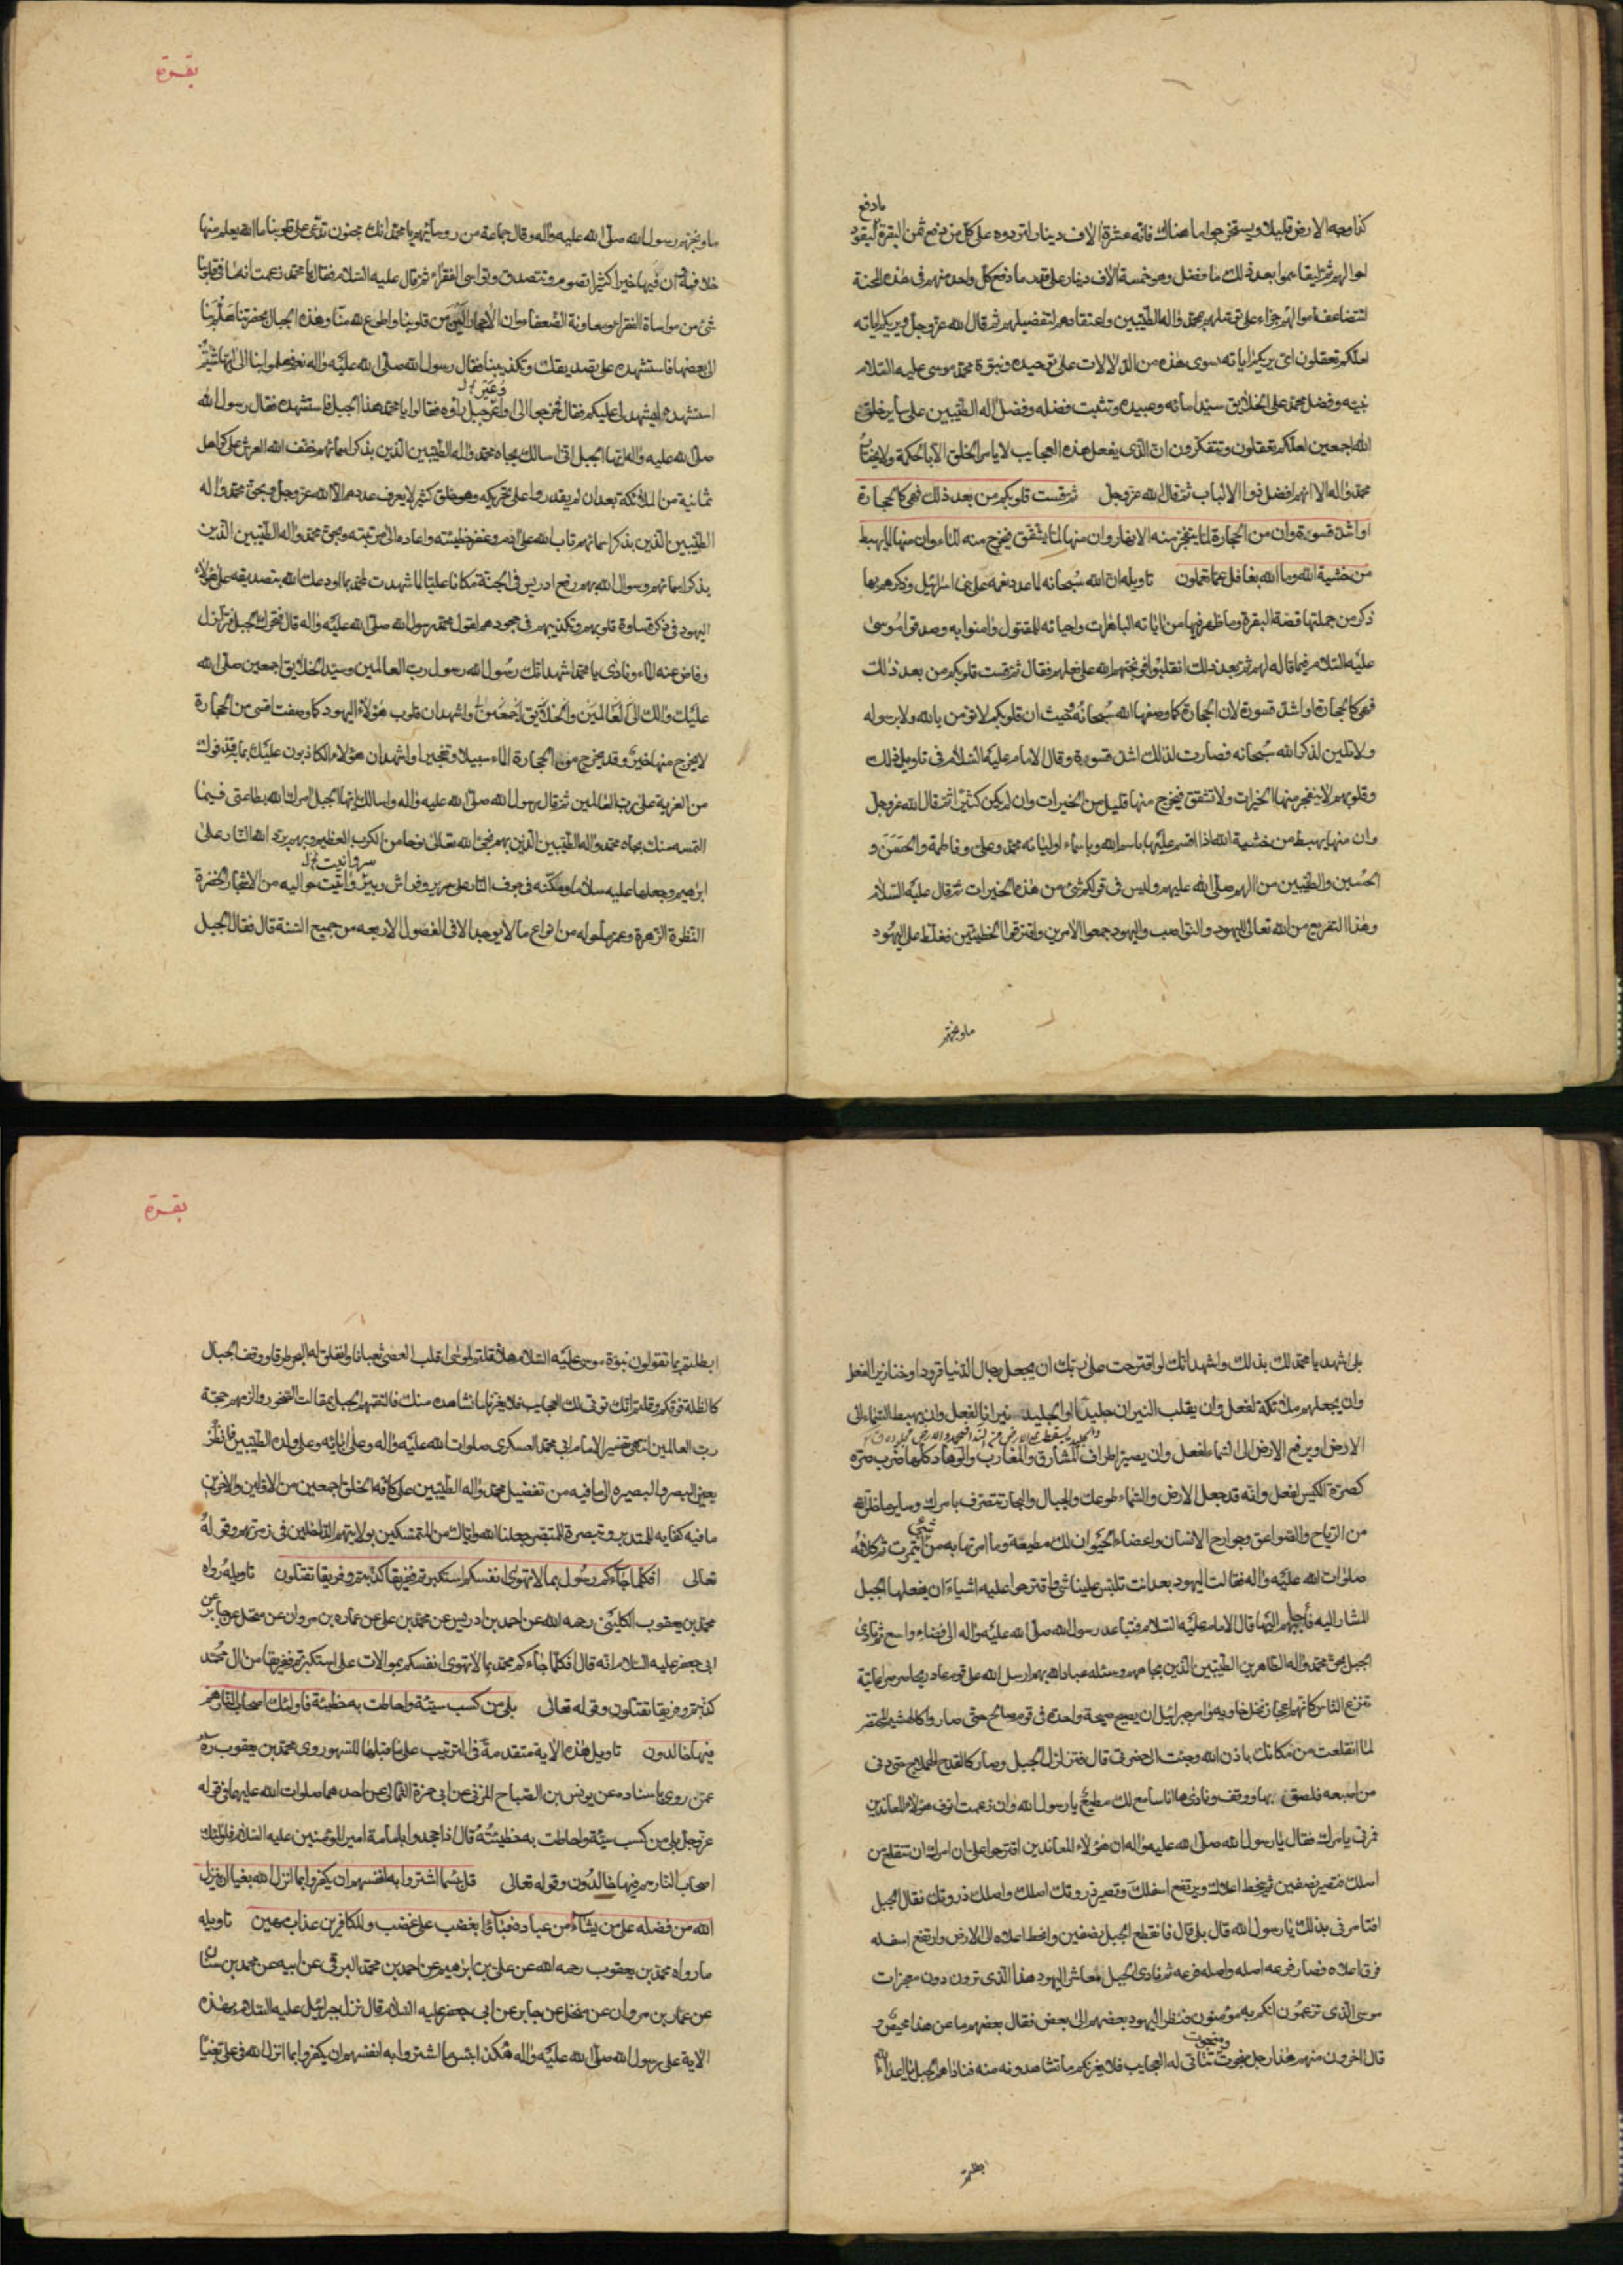 مادفع
كذا وجه الارض قليلا ويستخرجوا ما هناك فانه عشرة الاف دينار لتردوه على كل من دفع ثمن البقرة ليعود
احوالهم ثم ليقاسموا بعد ذلك ما فضل وهو خمسة الاف دينار على قدر ما دفع كل واحد منهم فى هذه المحنة
لتتضاعف اموالهم جزاء على توسلهم بمحمد واله الطيبين واعتقادهم لتفضيلهم ثم قال الله عز وجل ويريكم اياته
لعلكم تعقلون اى يريكم اياته سوى هذه من الدلالات على توحيده ونبوة محمد موسى عليه السلام
نبيه وفضل محمد على الخلايق سيد امائه وعبيده وتثبت فضله وفضل اله الطيبين على ساير خلق
الله اجمعين لعلكم تعقلون وتتفكرون ان الذى يفعل هذه العجايب لا يامر الخلق الا بالحكمة ولا يختار
محمد واله الا انهم افضل ذوا الالباب ثم قال الله عز وجل ثم قست قلوبكم من بعد ذلك فهى كالحجارة
او اشد قسوة وان من الحجارة لما يتفجر منه الانهار وان منها لما يشقق فيخرج منه الماء وان منها لما يهبط
من خشية الله وما الله بغافل عما تعملون تاويله ان الله سبحانه لما عدد نعمه على بنى اسرائيل وذكرهم بها
ذكر من جملتها قصة البقرة وما ظهر فيها من اياته الباهرات واحيائه للمقتول وامنوا به وصدقوا موسى
عليه السلام فيما قاله لهم ثم بعد ذلك انقلبوا فوبخهم الله على فعلهم فقال ثم قست قلوبكم من بعد ذلك
فهى كالحجارة او اشد قسوة لان الحجارة كما وصفها الله سبحانه وحيث ان قلوبكم لا تؤمن بالله ولا برسوله
ولا تلين لذكر الله سبحانه فصارت لذلك اشد قسوة وقال الامام عليه السلام فى تاويل ذلك
وقلوبهم لا ينفجر منها الخيرات ولا تشقق فيخرج منها قليل من الخيرات وان لم يكن كثيرا ثم قال الله عز وجل
وان منها يهبط من خشية الله اذا اقسم عليها باسم الله وباسماء اوليائه محمد وعلى وفاطمة والحسن و
الحسين والطيبين من الهم صلى الله عليهم وليس فى قولكم شئ من هذه الخيرات ثم قال عليه السلام
وهذا التقريع من الله تعالى لليهود والنواصب واليهود جمعوا الامرين واقترفوا الخطيئتين فغلظ على اليهود
ماوبخهم
بقرة
ماوبخهم رسول الله صلى الله عليه واله وقال جماعة من رؤسائهم يا محمد انك مجنون تدعى على قلوبنا ما الله يعلم منها
خلافه ان فيها خيرا كثيرا نصوم ونتصدق ونواسى الفقراء ثم قال عليه السلام فقالوا يا محمد زعمت انه ما فى قلوبنا
شئ من مواساة الفقراء ومعاونة الضعفاء وان الاحجار الين من قلوبنا واطوع لله منا وهذه الجبال بحضرتنا فهلم بنا
الى بعضها فاستشهده على تصديقك وتكذيبنا فقال رسول الله صلى الله عليه واله نعم فهلموا بنا الى ايها شئتم
استشهده ليشهد لى عليكم فقال فخرجوا الى اوعر جبل راوه فقالوا يا محمد هذا الجبل فاستشهده فقال رسول الله
صلى الله عليه واله ايها الجبل انى اسالك بجاه محمد واله الطيبين الذين بذكر اسمائهم خفف الله العرش على كواهل
ثمانية من الملائكة بعد ان لم يقدروا على تحريكه وهو خلق كثير لا يعرف عددهم الا الله عز وجل وبحق محمد واله
الطيبين الذين بذكر اسمائهم تاب الله على ادم وغفر خطيئته واعاده الى مرتبته وبحق محمد واله الطيبين الذين
بذكر اسمائهم وسوال الله بهم رفع ادريس فى الجنة مكانا عليا لما شهدت لمحمد بما اودعك الله بتصديقه على هؤلاء
اليهود فى ذكر قساوة قلوبهم وتكذيبهم فى جحودهم لقول محمد رسول الله صلى الله عليه واله قال فتحرك الجبل وتزلزل
وفاض عنه الماء ونادى يا محمد اشهد انك رسول الله رسول رب العالمين وسيد الخلايق اجمعين صلى الله
عليك والك الى العالمين والخلايق اجمعين واشهد ان قلوب هؤلاء اليهود كما وصفت اقسى من الحجارة
لا يخرج منها خير وقد يخرج من الحجارة الماء سبيلا وتفجيرا واشهد ان هؤلاء لكاذبون عليك بما قذفوك
من الفرية على رب العالمين ثم قال رسول الله صلى الله عليه واله واسالك ايها الجبل امرك الله بطاعتى فيما
التمسه منك بجاه محمد واله الطيبين الذين بهم نجى الله تعالى نوحا من الكرب العظيم وبهم برد الله النار على
ابرهيم وجعلها عليه سلاما ومكنه فى جوف النار على سرير وفراش وثير وانبت حواليه من الاشجار الخضرة
النظرة الزهرة وعمر ما حوله من انواع ما لا يوجد الا فى الفصول الاربعه من جميع السنة قال فقال الجبل
بلى اشهد يا محمد لك بذلك واشهد انك لو اقترحت على ربك ان يجعل رجال الدنيا قرودا وخنازير لفعل
وان يجعلهم ملائكة لفعل وان يقلب النيران جليدا او الجليد نيرانا لفعل وان يهبط السماء الى
الارض او يرفع الارض الى السماء لفعل وان يصير اطراف المشارق والمغارب والوهاد كلها صرة
كصرة الكيس لفعل وانه قد جعل الارض والسماء طوعك والجبال والبحار تتصرف بامرك وساير ما خلق الله
من الرياح والصواعق وجوارح الانسان واعضاء الحيوان لك مطيعة وما امرتها به من شئ ائتمرت
صلوات الله عليه واله فقالت اليهود بعد انت تلبس علينا واقترحوا عليه اشياء ان يفعلها الجبل
المشار اليه فاجابهم اليها قال الامام عليه السلام فتباعد رسول الله صلى الله عليه واله الى فضاء واسع ثم نادى
الجبل بحق محمد واله الطاهرين الطيبين الذين بجاههم ومسئلة عباد الله بهم ارسل الله على قوم عاد ريحا صرصرا عاتية
تنزع الناس كانهم اعجاز نخل خاويه وامر جبرائيل ان يصيح صيحة واحدة فى قوم صالح حتى صاروا كالهشيم المحتضر
لما انقلعت من مكانك باذن الله وجئت الى حضرتى قال فتزلزل الجبل وصار كالقدح الهملاج حتى دنى
من اصبعه فلصق بها ووقف ونادى ها انا سامع لك مطيع يا رسول الله وان زعمت انوف هؤلاء المعاندين
فمرنى بامرك فقال يا رسول الله صلى الله عليه واله ان هؤلاء المعاندين اقترحوا على ان امرك ان تنقلع من
اصلك فتصير نصفين ثم ينحط اعلاك ويرتفع اسفلك وتصير ذروتك اصلك واصلك ذروتك فقال الجبل
افتامرنى بذلك يا رسول الله قال بلى قال فانقطع الجبل نصفين وانحط اعلاه الى الارض وارتفع اسفله
فوق اعلاه فصار فرعه اصله واصله فرعه ثم نادى الجبل معاشر اليهود هذا الذى ترون دون معجزات
موسى الذى تزعمون انكم به مؤمنون فنظر اليهود بعضهم الى بعض فقال بعضهم ما عن هذا محيص و
قال اخرون منهم هذا رجل مبخوت تتاتى له العجايب فلا يغرنكم ما تشاهدونه منه فناداهم الجبل يا اعداء الله
ابطلتم
بقرة
ابطلتم بما تقولون نبوة موسى عليه السلام هلا قلتم لموسى اقلب العصى ثعبانا وانفلق له البحر طرقا ووقف الجبال
كالظلة فوقكم وقلتم انك توتى لك العجايب فلا يغرنا ما نشاهده منك فالقتهم الجبل بمقالته الصخور والزمهم حجة
رب العالمين انتهى تفسير الامام ابى محمد العسكرى صلوات الله عليه واله وعلى ابائه وعلى ولده الطيبين فانظر
بعين البصر والبصيره الى ما فيه من تفضيل محمد واله الطيبين على كافه الخلق اجمعين من الاولين والاخرين
ما فيه كفايه للمتدبر وتبصرة للمتبصر جعلنا الله واياك من المتمسكين بولايتهم الداخلين فى زمرتهم وقوله
تعالى افكلما جاءكم رسول بما لا تهوى انفسكم استكبرتم ففريقا كذبتم وفريقا تقتلون تاويله رواه
محمد بن يعقوب الكلينى رحمه الله عن احمد بن ادريس عن محمد بن على عن عماره بن مروان عن منخل عن جابر عن
ابى جعفر عليه السلام انه قال افكلما جاءكم محمد بما لا تهوى انفسكم بموالات على استكبرتم ففريقا من ال محمد
كذبتم وفريقا تقتلون وقوله تعالى بلى من كسب سيئة واحاطت به خطيئة فاولئك اصحاب النار هم
فيها خالدون تاويل هذه الاية متقدمة فى الترتيب على ما قبلها للسهو روى محمد بن يعقوب ره
عمن روى باسناده عن يونس بن الصباح المزنى عن ابى حمزة الثمالى عن احدهما صلوات الله عليهما فى قوله
عز وجل بلى من كسب سيئة واحاطت به خطيئته قال اذا جحدوا امامة امير المؤمنين عليه السلام فاولئك
اصحاب النار هم فيها خالدون وقوله تعالى قل بئسما اشتروا به انفسهم ان يكفروا بما انزل الله بغيا ان ينزل
الله من فضله على من يشاء من عباده فباؤا بغضب على غضب وللكافرين عذاب مهين تاويله
ما رواه محمد بن يعقوب رحمه الله عن على بن ابرهيم عن احمد بن محمد البرقى عن ابيه عن محمد بن سنان
عن عمار بن مروان عن منخل عن جابر عن ابى جعفر عليه السلام قال نزل جبرائيل عليه السلام بهذه
الاية على رسول الله صلى الله عليه واله هكذا بئسما اشتروا به انفسهم ان يكفروا بما انزل الله فى على بغيا